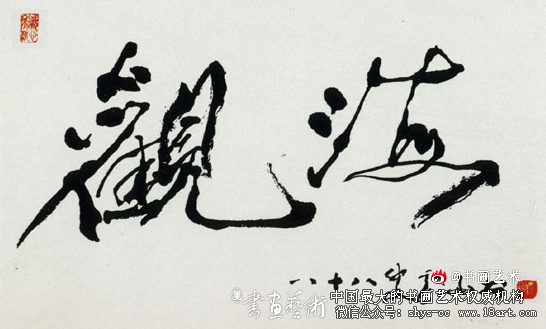 觀海
八十八
@书画艺术
書畫藝術
中国最大的书画艺术权威机构
微信公众号：shys-cc www.18art.com